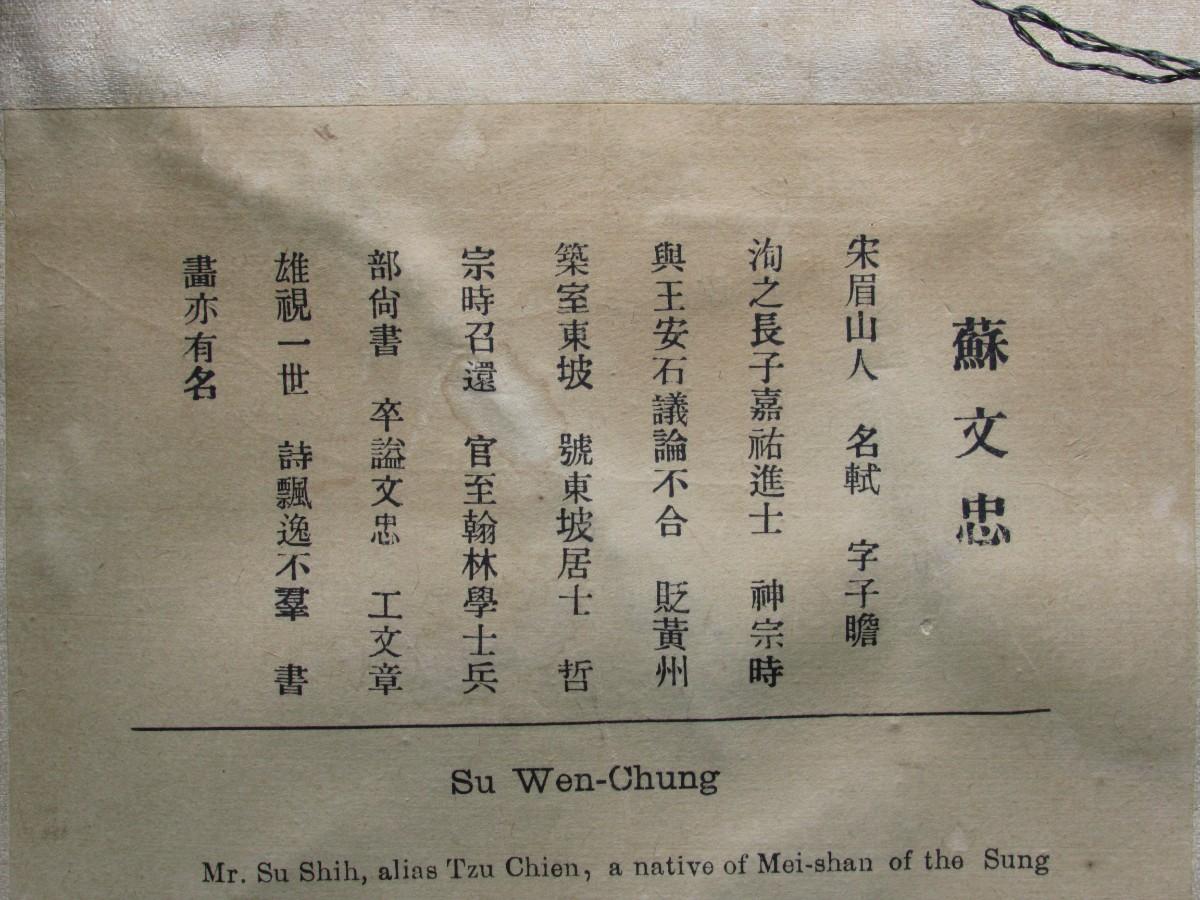 蘇文忠
宋眉山人 名軾 字子瞻
洵之長子嘉祐進士 神宗時
與王安石議論不合 貶黃州
築室東坡 號東坡居士 哲
宗時召還 官至翰林學士兵
部尙書 卒謚文忠 工文章
雄視一世 詩飄逸不羣 書
畵亦有名
Su Wen-Chung
Mr. Su Shih, alias Tzu Chien, a native of Mei-shan of the Sung